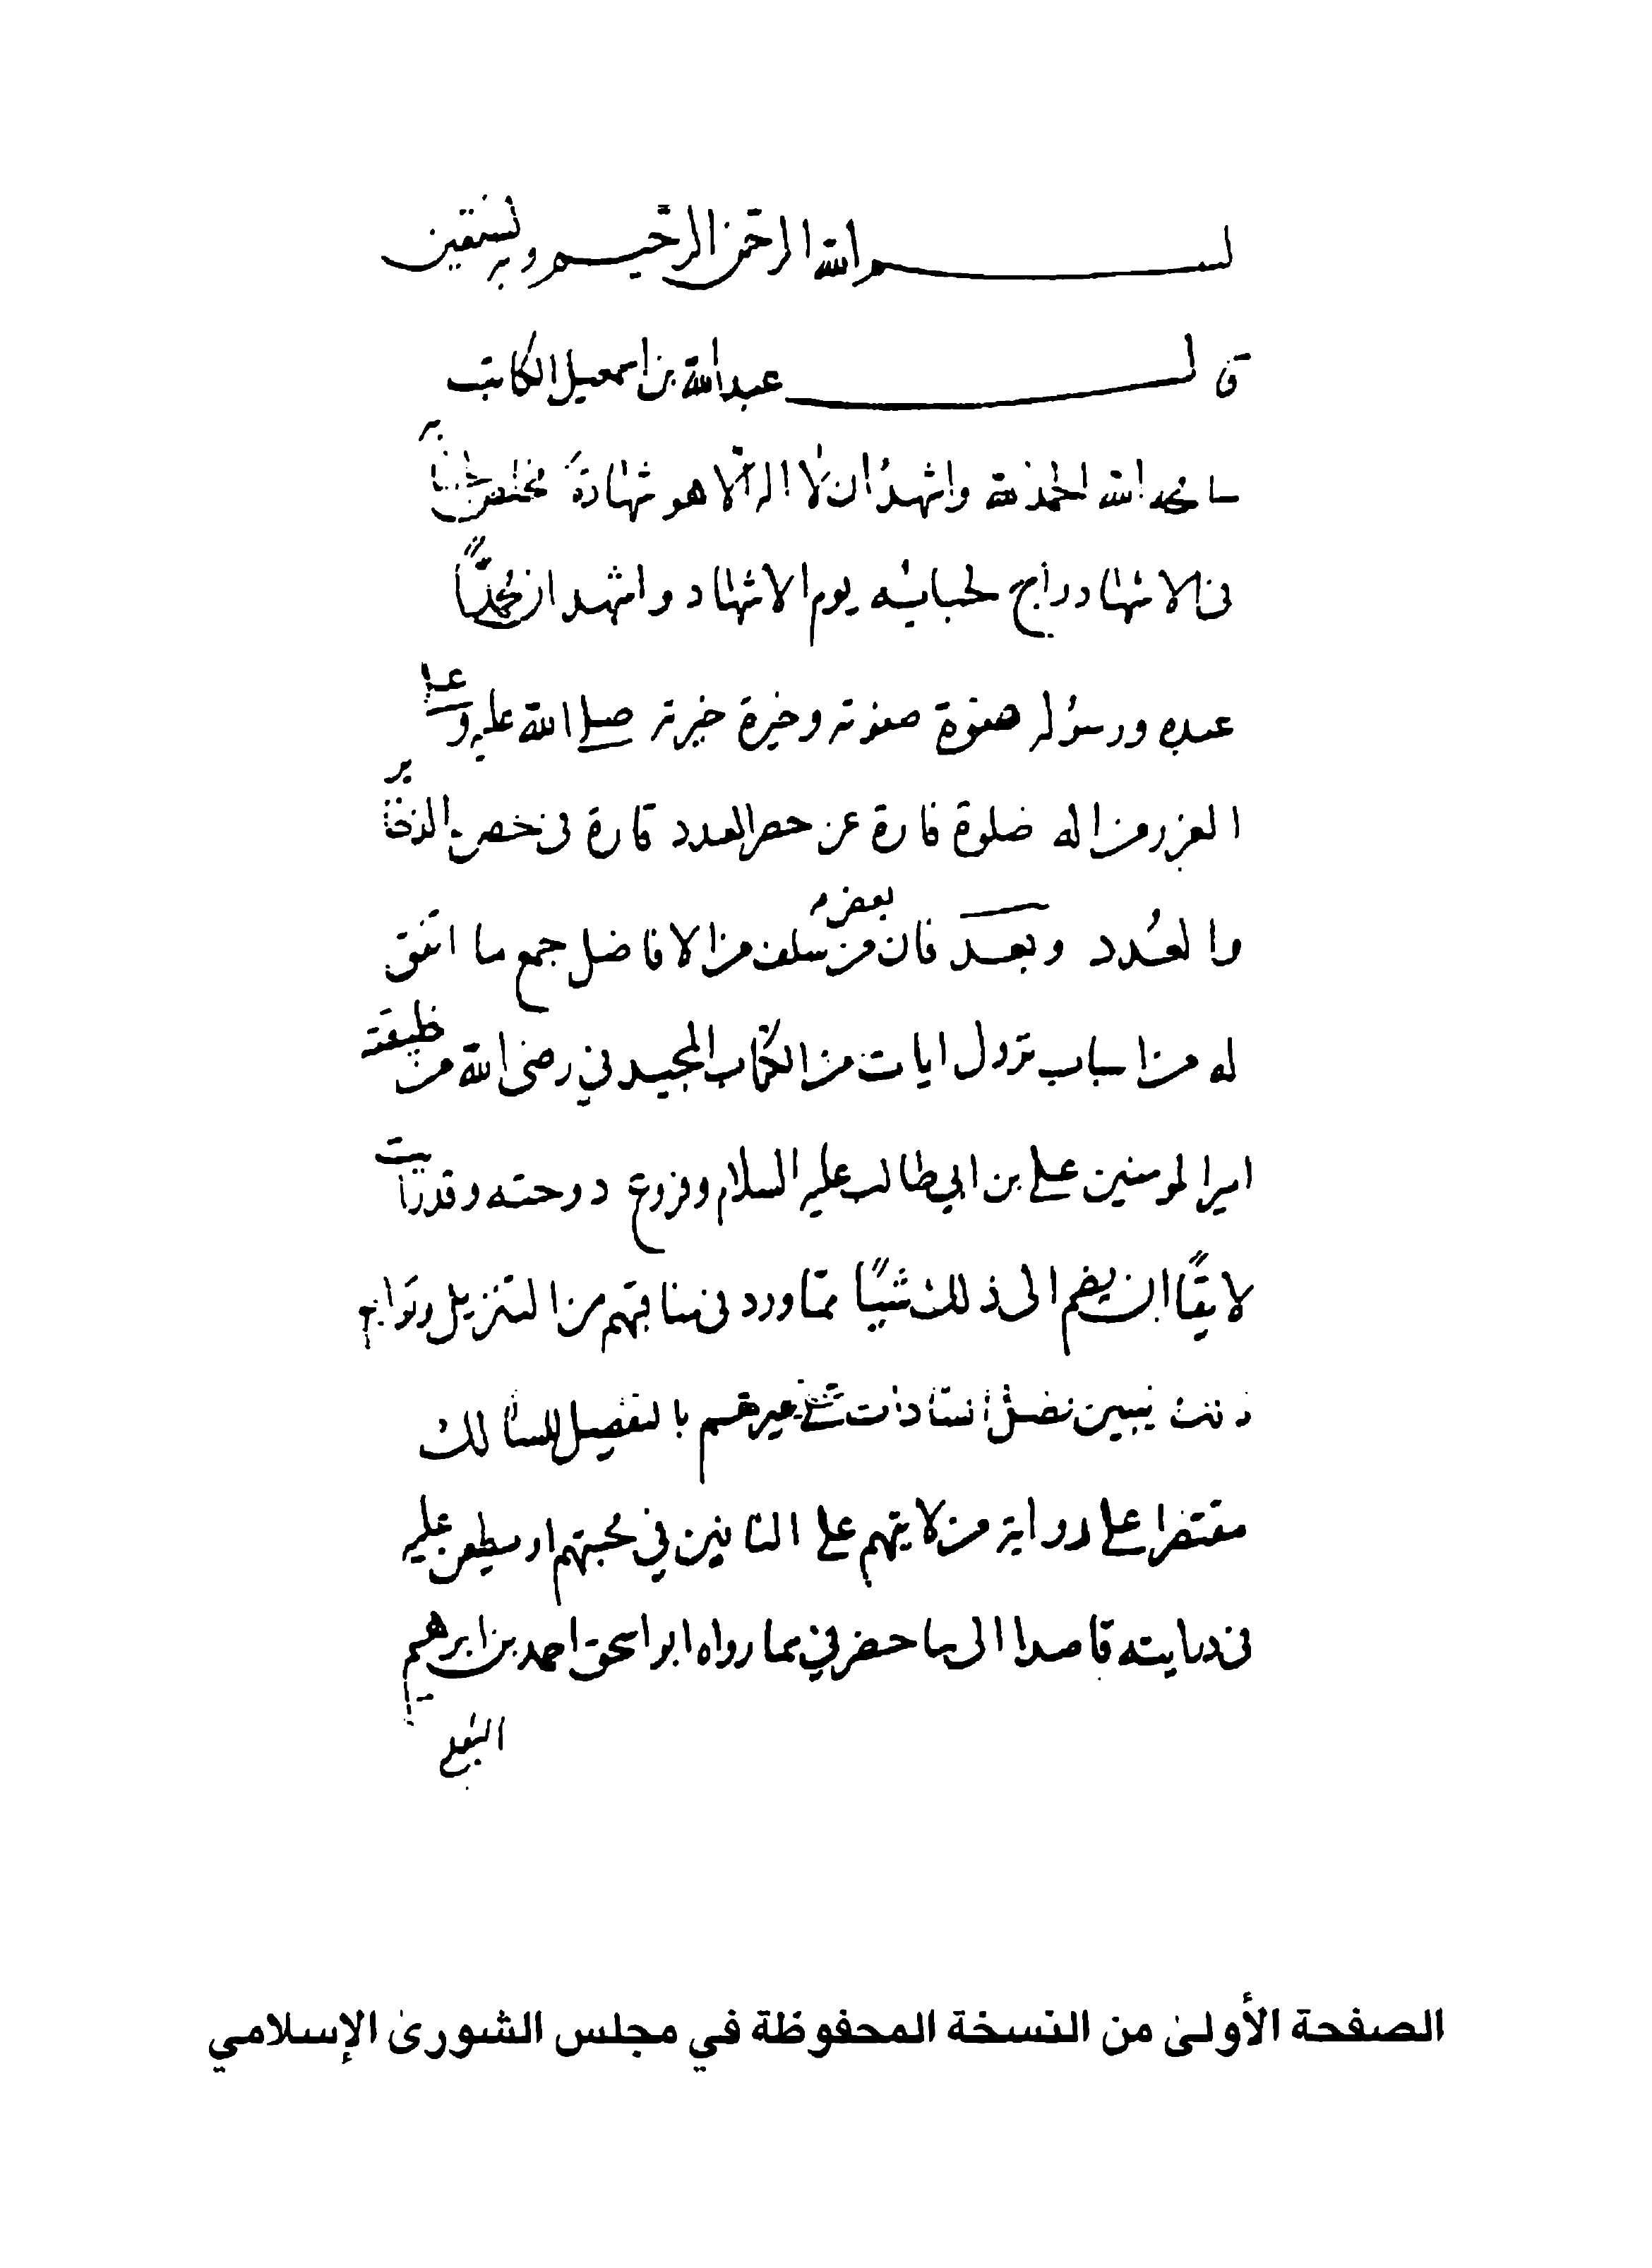 بسم الله الرحمن الرحيم وبه نستعين
قال عبدالله بن اسمعيل الكاتب
سامحه الله الحمد لله واشهد ان لا اله الا هو شهادة مخلص
في الاشهاد راج لحسابه يوم الاشهاد واشهد ان محمدًا
عبده ورسوله صفوة صفوته وخيرة خيرته صلى الله عليه وعلى
الغر من اله صلوة فارة عن حصر العدد قارة في خصر الذخاير
والعدد وبعد فان بعض من سلف من الافاضل جمع ما اتفق
له من اسباب نزول ايات من الكتاب المجيد في رضى الله من خليقته
امير المومنين علي بن ابي طالب عليه السلام وفروع دوحته وقد رايت
لايقًا ان يضم الى ذلك شيئًا مما ورد في مناقبهم من التنزيل وتوابع
ذلك يبين فضل السادات على غيرهم بالتفصيل للسالك
مقتصرا على رواية من لا يتهم على الثانين في محبتهم او يطعن عليه
في درايته قاصدا الى ما حضرني مما رواه ابو اسحق احمد بن ابرهيم
الثعلبي
الصفحة الأولى من النسخة المحفوظة في مجلس الشورى الإسلامي